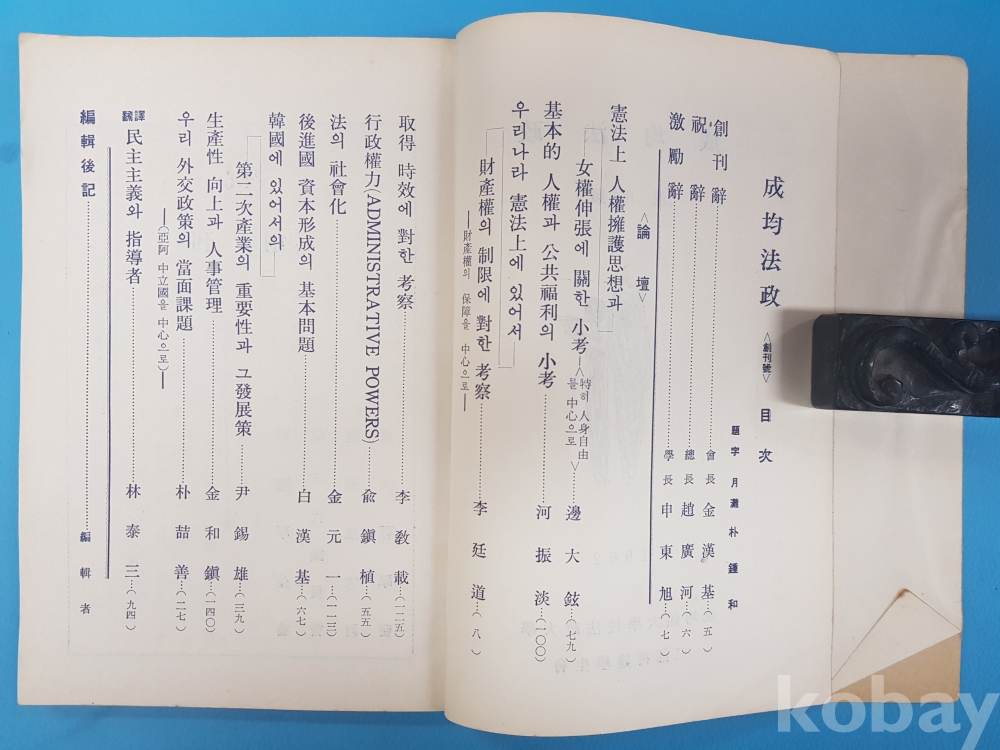 成均法政 <創刊號> 目次
題字 月灘 朴鍾和
創刊辭……會長 金漢基…(五)
祝辭……總長 趙廣河…(六)
激勵辭……學長 申東旭…(七)
<論壇>
憲法上 人權擁護思想과
女權伸張에 關한 小考—<特히 人身自由를 中心으로>…邊大鉉…(七九)
基本的 人權과 公共福利의 小考……河振淡…(一〇〇)
우리나라 憲法上에 있어서
財產權의 制限에 對한 考察……李廷道…(八)
—財產權의 保障을 中心으로—
取得 時效에 對한 考察……李敎載…(一二五)
行政權力(ADMINISTRATIVE POWERS)……兪鎭植…(五五)
法의 社會化……金元一…(一一三)
後進國 資本形成의 基本問題……白漢基…(六七)
韓國에 있어서의
第二次產業의 重要性과 그 發展策……尹錫雄…(三九)
生產性 向上과 人事管理……金和鎭…(一四〇)
우리 外交政策의 當面課題……朴喆善…(二七)
—(亞阿 中立國을 中心으로)—
飜譯 民主主義와 指導者……林泰三…(九四)
編輯後記……編輯者
kobay